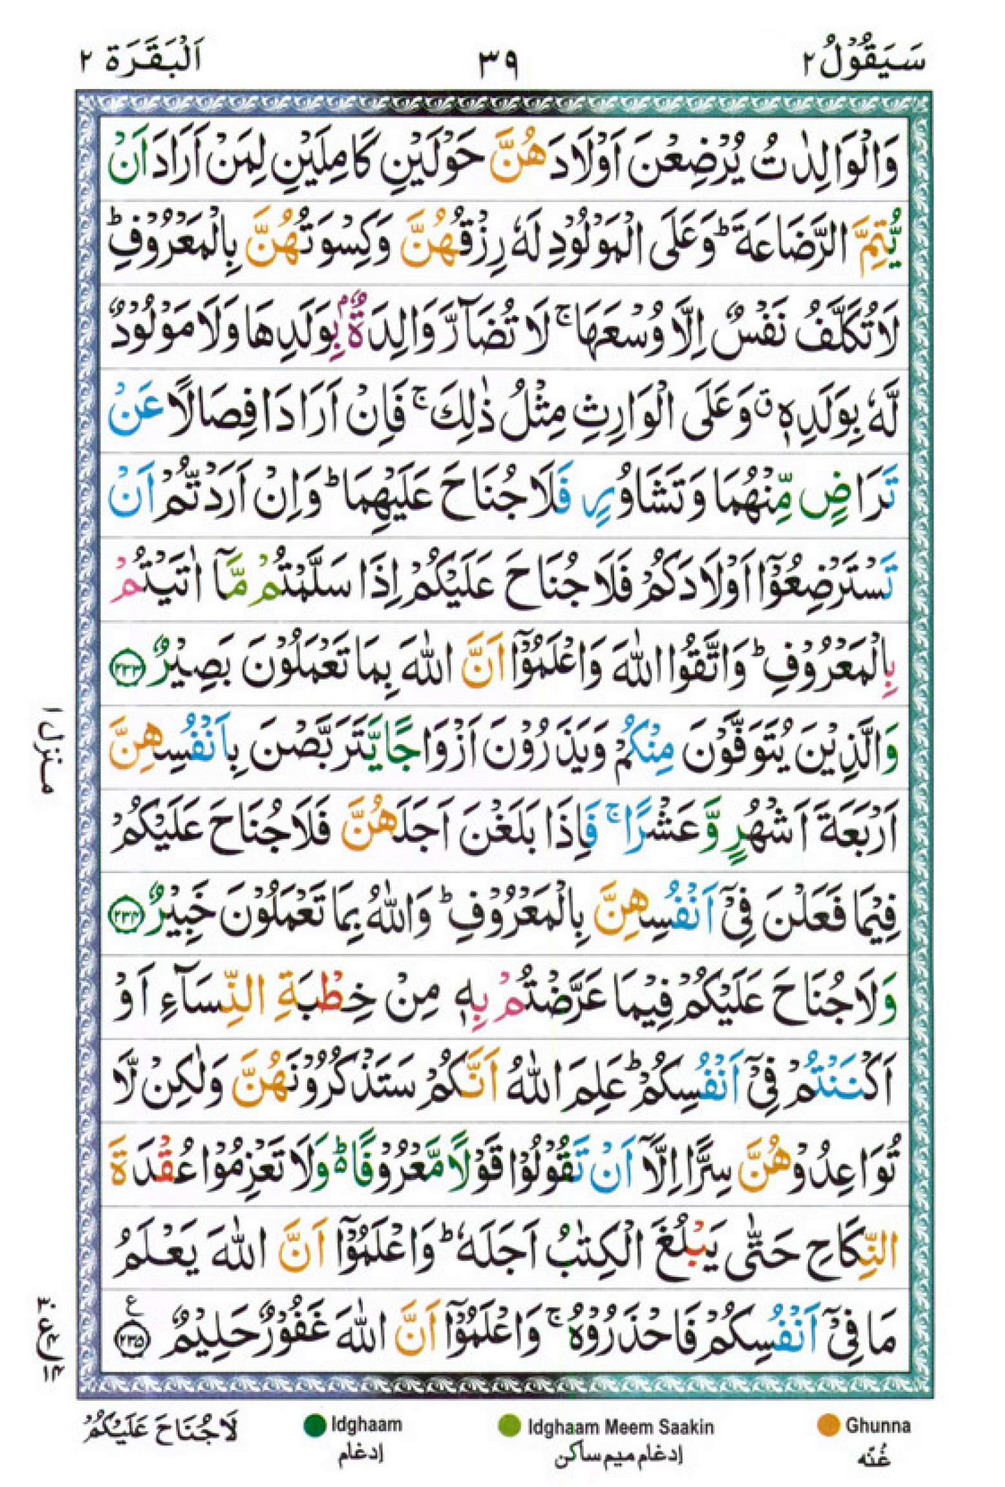 سَيَقُوۡلُ ٢
٣٩
اَلۡبَقَرَة ٢
وَالۡوَالِدٰتُ يُرۡضِعۡنَ اَوۡلَادَهُنَّ حَوۡلَيۡنِ كَامِلَيۡنِ لِمَنۡ اَرَادَ اَنۡ
يُّتِمَّ الرَّضَاعَةَ ؕ وَعَلَى الۡمَوۡلُوۡدِ لَهٗ رِزۡقُهُنَّ وَكِسۡوَتُهُنَّ بِالۡمَعۡرُوۡفِ ؕ
لَا تُكَلَّفُ نَفۡسٌ اِلَّا وُسۡعَهَا ۚ لَا تُضَآرَّ وَالِدَةٌ ۢ بِوَلَدِهَا وَلَا مَوۡلُوۡدٌ
لَّهٗ بِوَلَدِهٖ ٝ وَعَلَى الۡوَارِثِ مِثۡلُ ذٰلِكَ ۚ فَاِنۡ اَرَادَا فِصَالًا عَنۡ
تَرَاضٍ مِّنۡهُمَا وَتَشَاوُرٍ فَلَا جُنَاحَ عَلَيۡهِمَا ؕ وَاِنۡ اَرَدْتُّمۡ اَنۡ
تَسۡتَرۡضِعُوۡٓا اَوۡلَادَكُمۡ فَلَا جُنَاحَ عَلَيۡكُمۡ اِذَا سَلَّمۡتُمۡ مَّآ اٰتَيۡتُمۡ
بِالۡمَعۡرُوۡفِ ؕ وَاتَّقُوا اللّٰهَ وَاعۡلَمُوۡٓا اَنَّ اللّٰهَ بِمَا تَعۡمَلُوۡنَ بَصِيۡرٌ ٢٣٣
وَالَّذِيۡنَ يُتَوَفَّوۡنَ مِنۡكُمۡ وَيَذَرُوۡنَ اَزۡوَاجًا يَّتَرَبَّصۡنَ بِاَنۡفُسِهِنَّ
اَرۡبَعَةَ اَشۡهُرٍ وَّعَشۡرًا ۚ فَاِذَا بَلَغۡنَ اَجَلَهُنَّ فَلَا جُنَاحَ عَلَيۡكُمۡ
فِيۡمَا فَعَلۡنَ فِىۡٓ اَنۡفُسِهِنَّ بِالۡمَعۡرُوۡفِ ؕ وَاللّٰهُ بِمَا تَعۡمَلُوۡنَ خَبِيۡرٌ ٢٣٤
وَلَا جُنَاحَ عَلَيۡكُمۡ فِيۡمَا عَرَّضۡتُمۡ بِهٖ مِنۡ خِطۡبَةِ النِّسَآءِ اَوۡ
اَكۡنَنۡتُمۡ فِىۡٓ اَنۡفُسِكُمۡ ؕ عَلِمَ اللّٰهُ اَنَّكُمۡ سَتَذۡكُرُوۡنَهُنَّ وَلٰكِنۡ لَّا
تُوَاعِدُوۡهُنَّ سِرًّا اِلَّآ اَنۡ تَقُوۡلُوۡا قَوۡلًا مَّعۡرُوۡفًا ؕ وَلَا تَعۡزِمُوۡا عُقۡدَةَ
النِّكَاحِ حَتّٰى يَبۡلُغَ الۡكِتٰبُ اَجَلَهٗ ؕ وَاعۡلَمُوۡٓا اَنَّ اللّٰهَ يَعۡلَمُ
مَا فِىۡٓ اَنۡفُسِكُمۡ فَاحۡذَرُوۡهُ ۚ وَاعۡلَمُوۡٓا اَنَّ اللّٰهَ غَفُوۡرٌ حَلِيۡمٌ ٢٣٥ ع
منزل ١
ع ٤ ١٤
Ghunna
غُنّه
Idghaam Meem Saakin
إدغام ميم ساكن
Idghaam
إدغام
لَا جُنَاحَ عَلَيۡكُمۡ